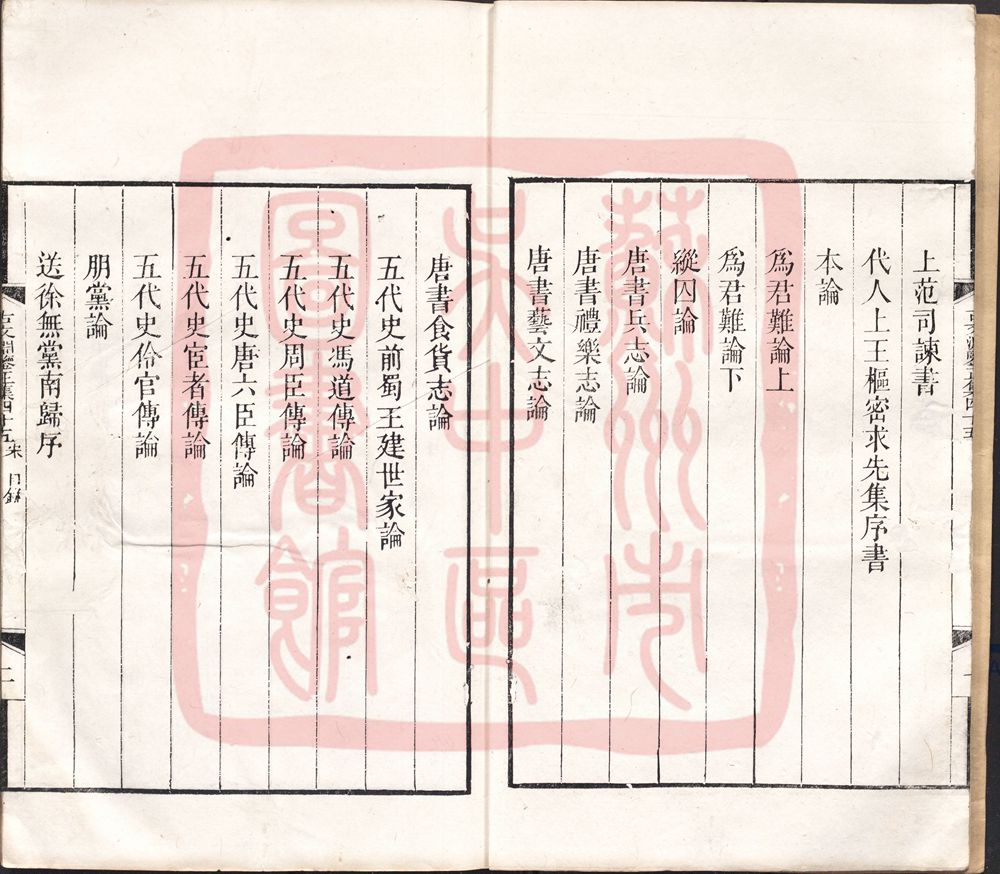 上范司諫書
代人上王樞密求先集序書
本論
爲君難論上
爲君難論下
縱囚論
唐書兵志論
唐書禮樂志論
唐書藝文志論
唐書食貨志論
五代史前蜀王建世家論
五代史馮道傳論
五代史周臣傳論
五代史唐六臣傳論
五代史宦者傳論
五代史伶官傳論
朋黨論
送徐無黨南歸序
古文淵鑒正集四十五 宋 目錄
二
蘇州市
吳中區
圖書館